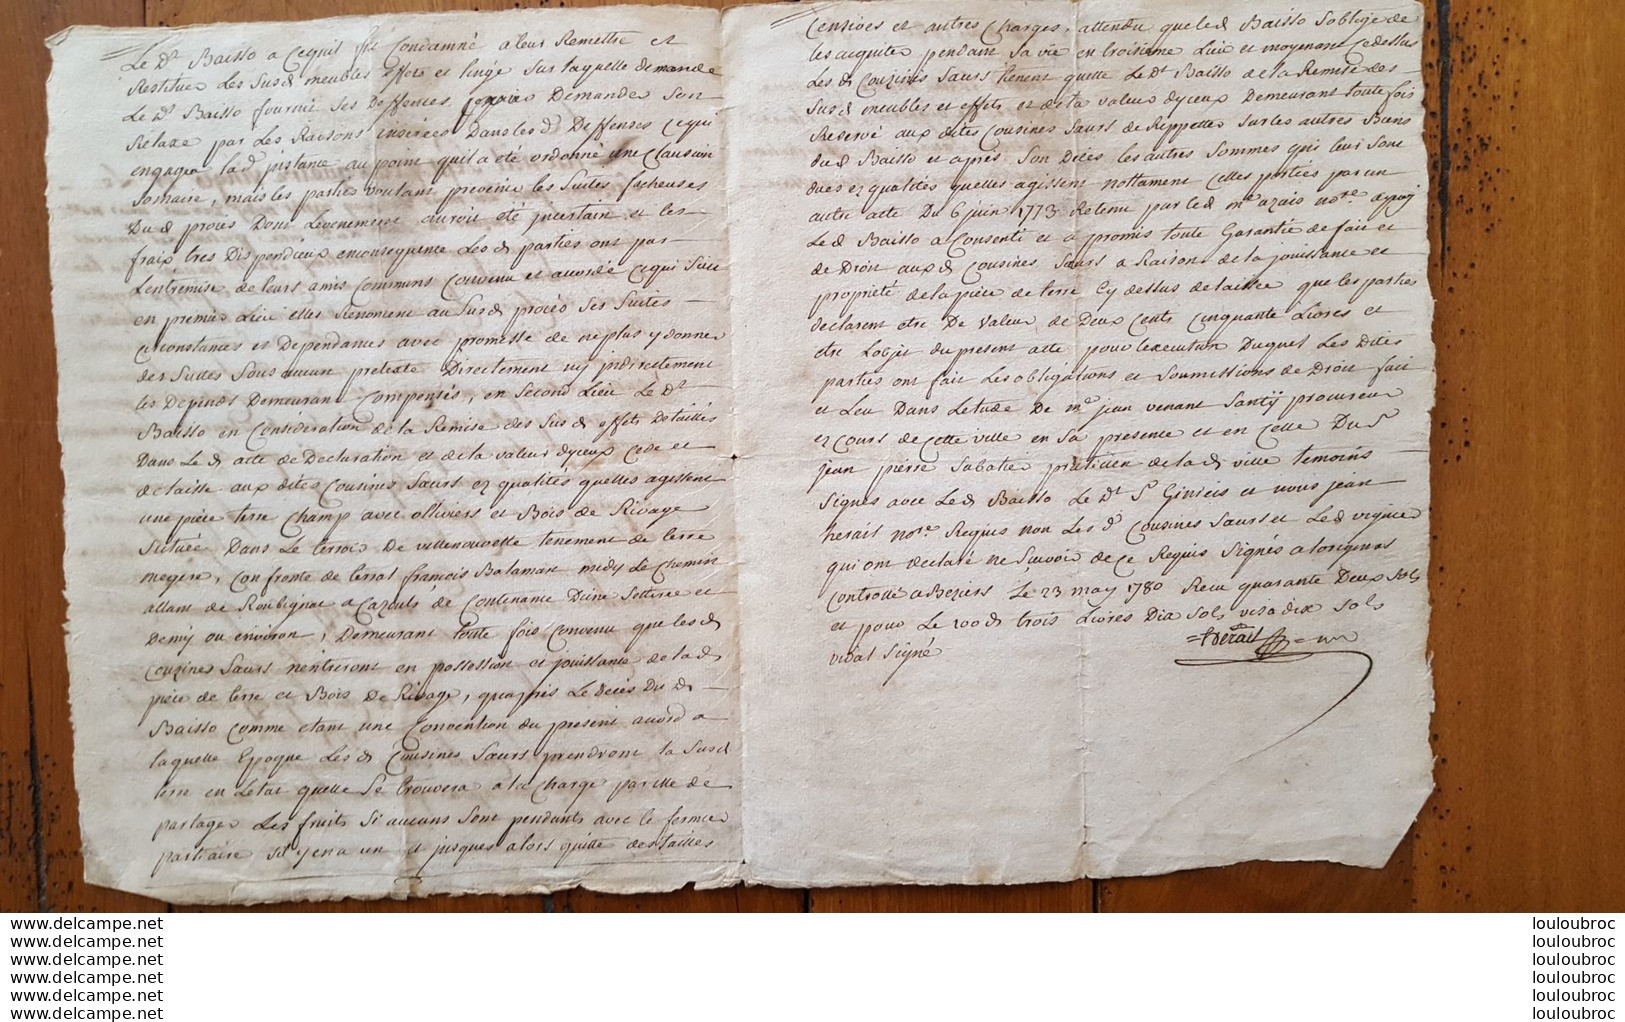 Le dt Baisso a cequil fut Condamné a leur Remettre et
Restituer Les Susd meubles effets et linge Sur laquelle demande
Le dt Baisso fournit Ses Deffences Demander Son
Relaxe par Les Raisons inserées Dans les d Deffenses cequi
engagea lad jnstance au point quil a eté ordonné une Clausion
Somaire, mais les parties voulant prevenir les Suites facheuses
Du d procès Dont Levenement auroit eté jncertain et les
fraix tres Dispendieux enconsequence Les d parties ont par
Lentremise de leurs amis Communs Convenu et accordé cequi Suit
en premier Lieu elles Renoncent au Susd procès Ses Suites
circonstances et Dependances avec promesse de ne plus y donner
des Suites Sous aucun pretexte Directement ny jndirectement
les Depends Demeurant Compensés, en Second Lieu Le dt
Baisso en Consideration de la Remise des Susd effets Detaillés
Dans Le d acte de Declaration et de la valeur dyceux cede et
delaisse aux dites Cousines Sœurs ez qualités quelles agissent
une pièce terre Champ avec olliviers et Bois de Rivage
Scituée Dans Le terroir De villenouvette tenement de terre
megere, Confronte de terral françois Balaman midy Le chemin
allant de Roubignac a Cazouls de Contenance Dune Setterée et
Demy ou environ, Demeurant toute fois Convenu que les d
Couzines Sœurs nentreront en possession et jouissance de la d
pièce de terre et Bois De Rivage, quaprès Le decès Du d
Baisso comme etant une Convention du present accord a
laquelle Epoque Les d Cousines Sœurs prendront la Susd
terre en Letat quelle Se trouvera a la charge par elle de
partager Les fruits Si aucuns Sont pendants avec le fermier
partiaire Sil y en a un et jusques alors quitte des tailles
Censives et autres Charges, attendu que le d Baisso Soblige de
les acquiter pendant Sa vie en troisieme Lieu et moyenant cedessus
Les d Couzines Sœurs tienent quitte Le dt Baisso de la Remise des
Susd meubles et effets et de la valeur dyceux Demeurant toute fois
Reservé aux dites Cousines Sœurs de Reppetter Sur les autres Biens
du d Baisso et apres Son Décès les autres Sommes qui leur Sont
dues ez qualités quelles agissent nottament celles portées par un
autre acte Du 6 juin 1773 Retenu par le d me azais nore
Le d Baisso a Consenti et a promis toute Garantie de fait et
de Droit aux d Cousines Sœurs a Raison de la jouissance et
propriété de la pièce de terre Cy dessus delaissée que les parties
declarent etre De valeur de Deux Cents Cinquante Livres et
etre Lobjet du present acte pour lexecution Duquel Les Dites
parties ont fait Les obligations et Soumissions de Droit fait
et Leu Dans Letude De me jean venant Santÿ procureur
ez Cours de cette ville en Sa presente et en celle Du Sr
jean pierre Sabatié pratitien de la d ville temoins
Signés avec Le d Baisso Le dt Sr Ginieis et nous jean
herail nore Requis non Les d Cousines Sœurs et Le d vignier
qui ont declaré ne Sçavoir de ce Requis Signés a loriginal
Controllé a Beziers Le 23 may 1780 Recu quarante Deux Sols
et pour Le 100e trois Livres Dix Sols visa dix Sols
vidal Signé
herail
www.delcampe.net
www.delcampe.net
www.delcampe.net
www.delcampe.net
www.delcampe.net
www.delcampe.net
louloubroc
louloubroc
louloubroc
louloubroc
louloubroc
louloubroc